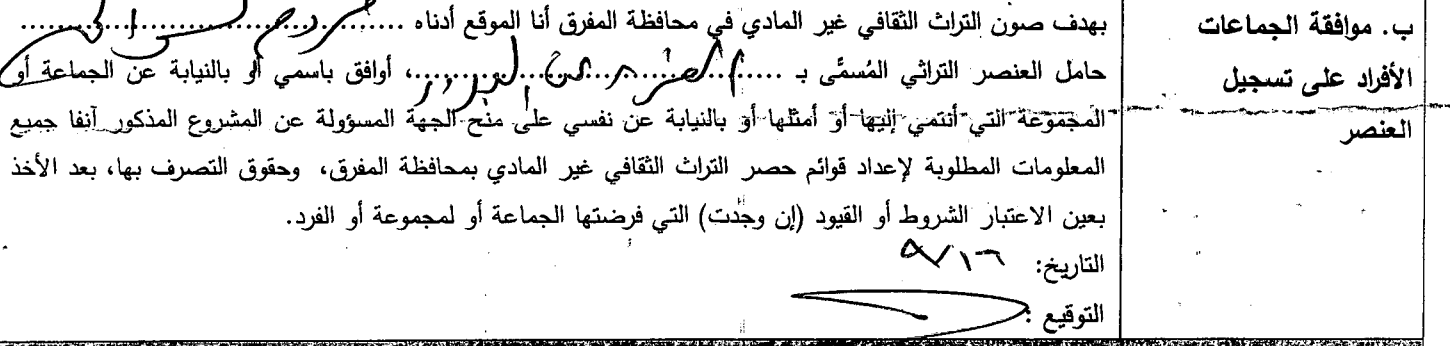 ب. موافقة الجماعات
الأفراد على تسجيل
العنصر
بهدف صون التراث الثقافي غير المادي في محافظة المفرق أنا الموقع أدناه ........................
حامل العنصر التراثي المُسمَّى بـ ........................، أوافق باسمي أو بالنيابة عن الجماعة أو
المجموعة التي أنتمي إليها أو أمثلها أو بالنيابة عن نفسي على منح الجهة المسؤولة عن المشروع المذكور آنفا جميع
المعلومات المطلوبة لإعداد قوائم حصر التراث الثقافي غير المادي بمحافظة المفرق، وحقوق التصرف بها، بعد الأخذ
بعين الاعتبار الشروط أو القيود (إن وجدت) التي فرضتها الجماعة أو لمجموعة أو الفرد.
التاريخ: ٩/١٦
التوقيع :